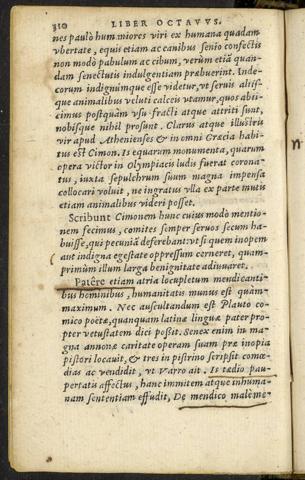 310 LIBER OCTAVVS.
nes paulò humaniores viri ex humana quadam
vbertate, equis etiam ac canibus senio confectis
non modò pabulum ac cibum, verùm etiā quan-
dam senectutis indulgentiam præbuerint. Inde-
corum indignúmque esse videtur, vt seruis aliís-
que animalibus veluti calceis vtamur, quos abii-
cimus postquàm vsu fracti atque attriti sunt,
nobísque nihil prosunt. Clarus atque illustris
vir apud Athenienses & in omni Græcia habi-
tus est Cimon. Is equarum monumenta, quarum
opera victor in Olympiacis ludis fuerat corona-
tus, iuxta sepulchrum suum magna impensa
collocari voluit, ne ingratus vlla ex parte mutis
etiam animalibus videri posset.
Scribunt Cimonem hunc cuius modò mentio-
nem fecimus, comites semper seruos secum ha-
buisse, qui pecuniā deferebant: vt si quem inopem
aut indigna egestate oppressum cerneret, quam-
primùm illum larga benignitate adiuuaret.
Patêre etiam atria locupletum mendicanti-
bus hominibus, humanitatis munus est quàm-
maximum. Nec auscultandum est Plauto co-
mico poëtæ, quanquam latinæ linguæ pater pro-
pter vetustatem dici possit. Senex enim in ma-
gna annonæ caritate operam suam præ inopia
pistori locauit, & tres in pistrino scripsit comœ-
dias ac vendidit, vt Varro ait. Is tædio pau-
pertatis affectus, hanc immitem atque inhuma-
nam sententiam effudit, De mendico malè me-